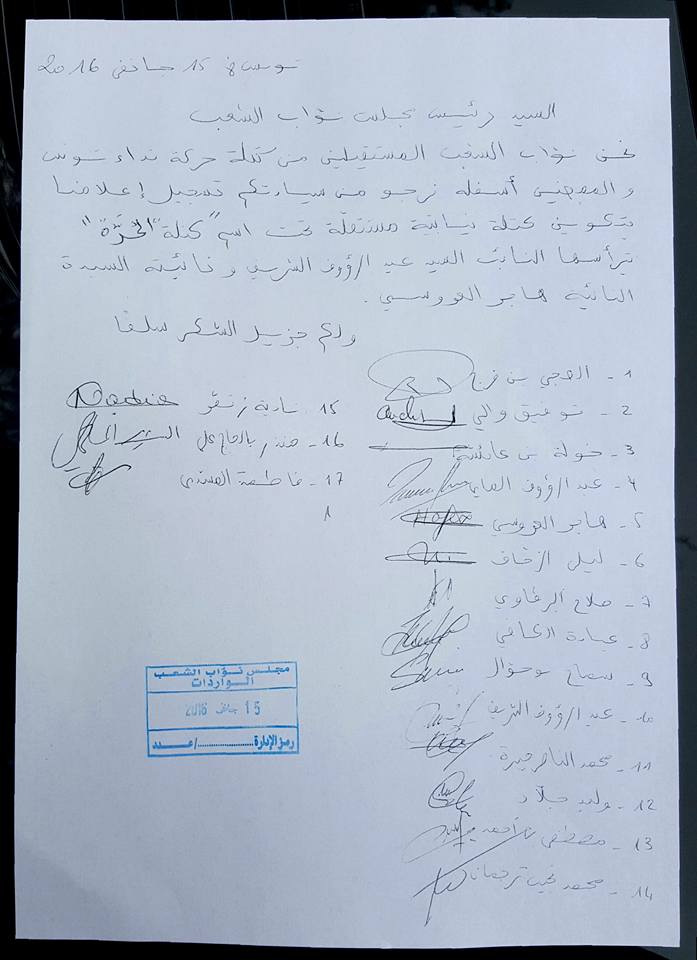 تونس في 15 جانفي 2016
السيد رئيس مجلس نواب الشعب
نحن نواب الشعب المستقيلين من كتلة حركة نداء تونس
و الممضين أسفله نرجو من سيادتكم تسجيل إعلامنا
بتكوين كتلة نيابية مستقلة تحت اسم "كتلة الحرّة"
يترأسها النائب السيد عبد الرؤوف الشريف و نائبته السيدة
النائبة هاجر العروسي.
ولكم جزيل الشكر سلفا
1 - الصحبي بن فرج
2 - توفيق والي
3 - خولة بن عائشة
4 - عبد الرؤوف الماي
5 - هاجر العروسي
6 - ليلى الزحاف
7 - صلاح البرقاوي
8 - عبادة الكافي
9 - سماح بوحوال
10 - عبد الرؤوف الشريف
11 - محمد الناصر جبيرة
12 - وليد جلاد
13 - مصطفى بن أحمد
14 - محمد نجيب ترجمان
15 - نادية زنقر
Nadia
16 - منذر بالحاج علي
17 - فاطمة المسدي
1
مجلس نواب الشعب
الواردات
15 جانفي 2016
رمز الإدارة ............/عدد